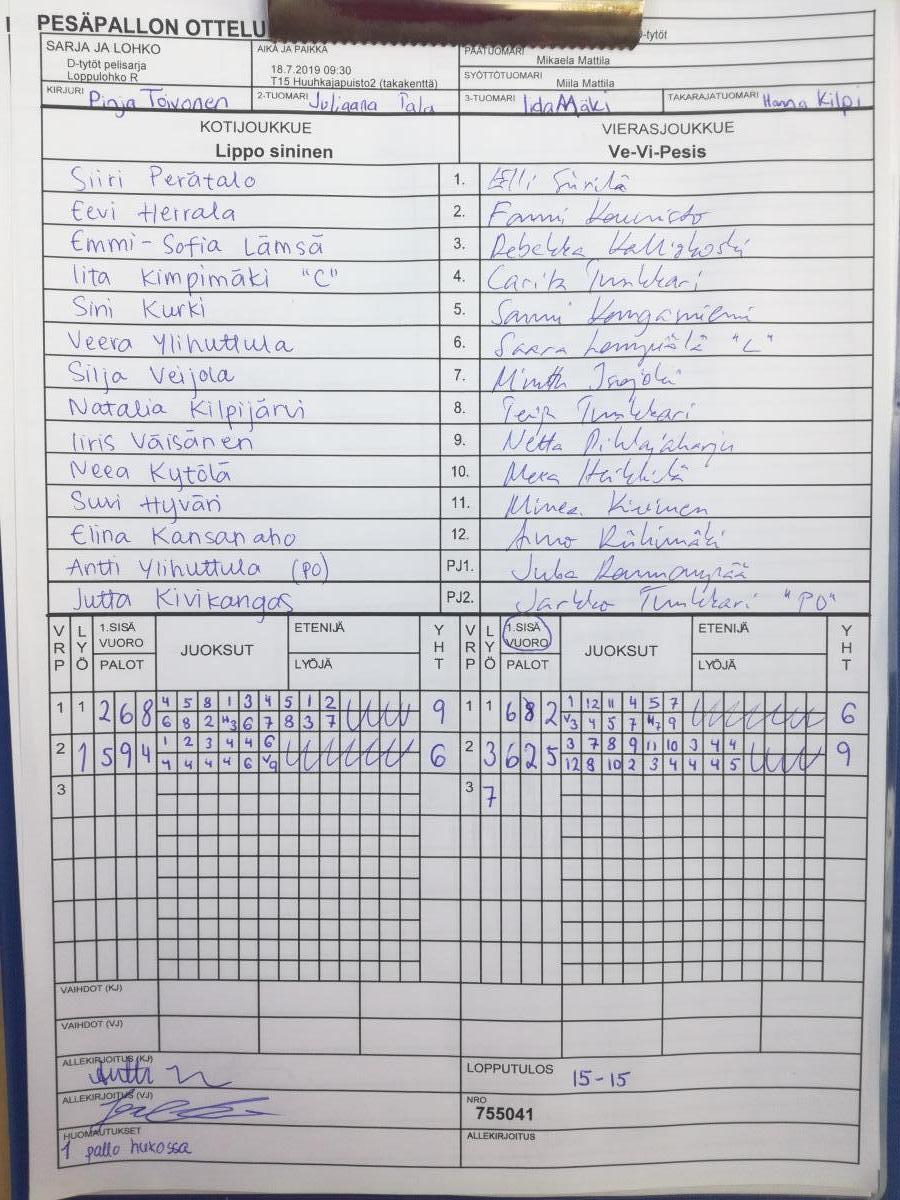 PESÄPALLON OTTELU
D-tytöt
SARJA JA LOHKO
D-tytöt pelisarja
Loppulohko R
AIKA JA PAIKKA
18.7.2019 09:30
T15 Huuhkajapuisto2 (takakenttä)
PÄÄTUOMARI
Mikaela Mattila
SYÖTTÖTUOMARI
Miila Mattila
KIRJURI Pinja Toivonen
2-TUOMARI Juliaana Tala
3-TUOMARI Iida Mäki
TAKARAJATUOMARI Hanna Kilpi
KOTIJOUKKUE
Lippo sininen
VIERASJOUKKUE
Ve-Vi-Pesis
Siiri Perätalo 1. Elli
Eevi Herrala 2. Fanni Kaunisto
Emmi-Sofia Lämsä 3. Rebekka Kalliokoski
Iita Kimpimäki "C" 4. Carita Tunkkari
Sini Kurki 5. Sanni Kangasniemi
Veera Ylihuttula 6. Saara
Silja Veijola 7. Minttu Isojoki
Natalia Kilpijärvi 8. Tunkkari
Iiris Väisänen 9. Netta Pihlajaharju
Neea Kytölä 10. Heikkilä
Suvi Hyväri 11. Minea Kivinen
Elina Kansanaho 12. Riihimäki
Antti Ylihuttula (PO) PJ1. Juha
Jutta Kivikangas PJ2. Jarkko Tunkkari "PO"
VRP LYÖ 1.SISÄ VUORO PALOT JUOKSUT ETENIJÄ LYÖJÄ YHT VRP LYÖ 1.SISÄ VUORO PALOT JUOKSUT ETENIJÄ LYÖJÄ YHT
1 1 2 6 8 4 5 8 1 3 4 5 1 2 9 1 1 6 8 2 1 12 11 4 5 7 6
6 8 2 H3 6 7 8 3 7 V3 4 5 7 H7 9
2 1 5 9 4 1 2 3 4 4 6 6 2 3 6 2 5 3 7 8 9 11 10 3 4 4 9
4 4 4 4 6 V9 12 8 10 2 3 4 4 4 5
3 3 7
VAIHDOT (KJ)
VAIHDOT (VJ)
ALLEKIRJOITUS (KJ)
LOPPUTULOS 15-15
ALLEKIRJOITUS (VJ)
NRO
755041
HUOMAUTUKSET
1 pallo hukassa
ALLEKIRJOITUS